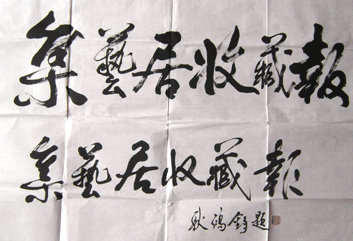 集藝居收藏報
集藝居收藏報
題